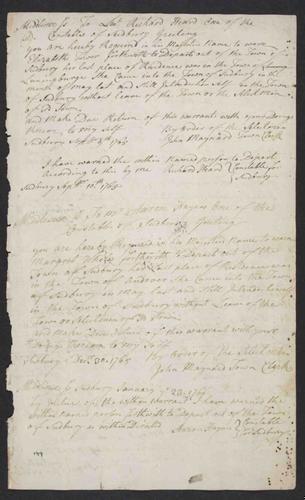 Middlesex ss To Lieut Richard Heard One of the
Constables of Sudbury Greeting
you are hereby Required in his Majesties Name to warn
Elizabeth forthwith to Depart out of the Town of
Sudbury her last place of Residence was in the Town of
Lunengburge She Came into the Town of Sudbury in the
month of may last and Still Intrudes her Self in the Town
of Sudbury without Leave of the Town or the Selectmen
of Sd Town
And Make Due Return of this warrant with your Doings
thereon to my Self By order of the Selectmen
Sudbury Sept 1765 John Maynard Town Clerk
I have warned the within Named person to Depart
According to this by me Richard Heard Constable for
Sudbury Sept 10th 1765 Sudbury
Middlesex ss To Mr Aaron Haynes One of the
Constables of Sudbury Greeting
you are hereby Required in his Majesties Name to warn
Margaret forthwith to Depart out of the
Town of Sudbury her Last place of Residence was
in the Town of She Came into the Town
of Sudbury in may Last and Still Intrudes herself
in the Town of Sudbury without Leave of the
Town or Selectmen of Sd Town
and Make Due Return of this warrant with your
Doings thereon to my Self
Sudbury Decr 30 1765 By Order of the Selectmen
John Maynard Town Clerk
Middlesex ss Sudbury January 1766
by virtue of the within warrant I have warned the
within named person forthwith to Depart out of the Town
of Sudbury as within Directed
Aaron Haynes Constable
of Sudbury